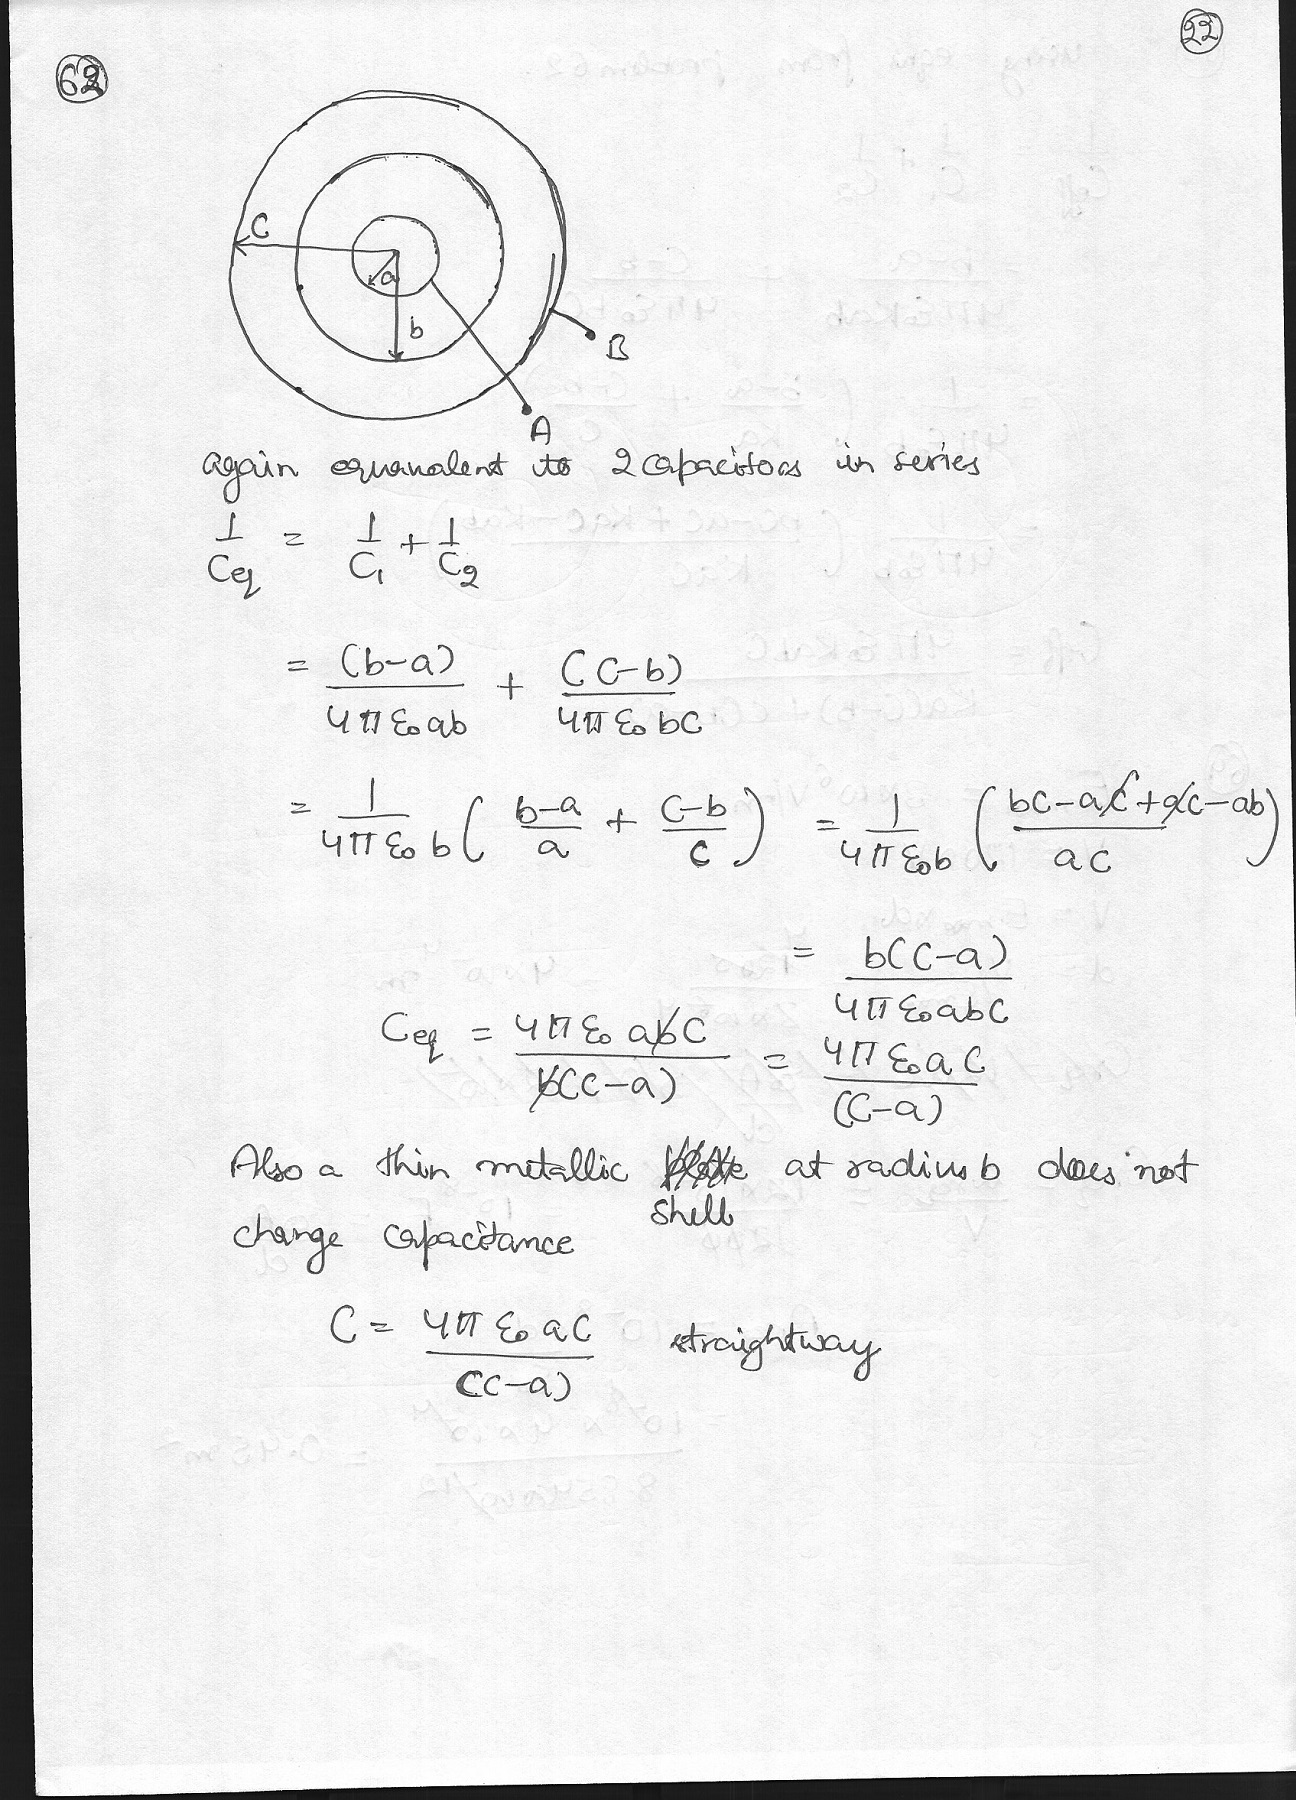 22
62
C
a
b
B
A
again equivalent to 2 capacitors in series
1/Ceq = 1/C1 + 1/C2
= (b-a)/4πε0ab + (C-b)/4πε0bC
= 1/4πε0b ( b-a/a + C-b/C ) = 1/4πε0b ( bC-aC+aC-ab / aC )
= b(C-a)/4πε0abC
Ceq = 4πε0abC/b(C-a) = 4πε0aC/(C-a)
Also a thin metallic shell at radius b does not
change capacitance
C = 4πε0aC/(C-a) straightway